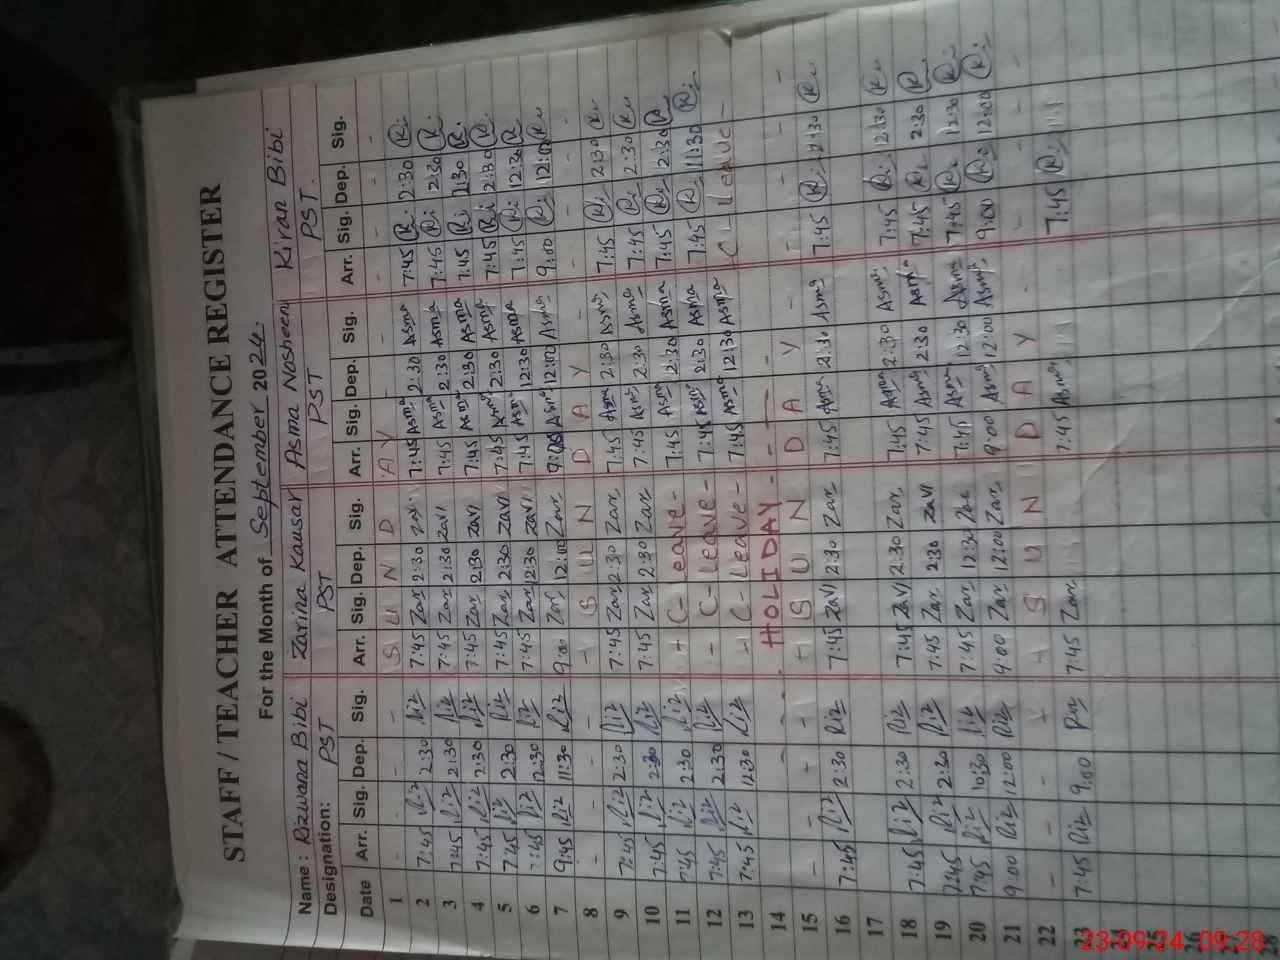 STAFF / TEACHER ATTENDANCE REGISTER
For the Month of September 2024.
Name: Rizwana Bibi Zarina Kausar Asma Nosheen Kiran Bibi
Designation: PST PST PST PST.
Date Arr. Sig. Dep. Sig. Arr. Sig. Dep. Sig. Arr. Sig. Dep. Sig. Arr. Sig. Dep. Sig.
1 - - - S U N D A Y - - - - -
2 7:45 Riz 2:30 Riz 7:45 Zar 2:30 Zar 7:45 Asma 2:30 Asma 7:45 Ki 2:30 Ki
3 7:45 Riz 2:30 Riz 7:45 Zar 2:30 Zar 7:45 Asma 2:30 Asma 7:45 Ki 2:30 Ki
4 7:45 Riz 2:30 Riz 7:45 Zar 2:30 Zar 7:45 Asma 2:30 Asma 7:45 Ki 2:30 Ki
5 7:45 Riz 2:30 Riz 7:45 Zar 2:30 Zar 7:45 Asma 2:30 Asma 7:45 Ki 2:30 Ki
6 7:45 Riz 12:30 Riz 7:45 Zar 12:30 Zar 7:45 Asma 12:30 Asma 7:45 Ki 12:30 Ki
7 9:45 Riz 11:30 Riz 9:00 Zar 12:00 Zar Asma 12:00 Asma 9:00 Ki 12:00 Ki
8 - - - - - S U N D A Y - - - - -
9 7:45 Riz 2:30 Riz 7:45 Zar 2:30 Zar 7:45 Asma 2:30 Asma 7:45 Ki 2:30 Ki
10 7:45 Riz 2:30 Riz 7:45 Zar 2:30 Zar 7:45 Asma 2:30 Asma 7:45 Ki 2:30 Ki
11 7:45 Riz 2:30 Riz - C- Leave - 7:45 Asma 2:30 Asma 7:45 Ki 2:30 Ki
12 7:45 Riz 2:30 Riz - C- Leave - 7:45 Asma 2:30 Asma 7:45 Ki 11:30 Ki
13 7:45 Riz 12:30 Riz - C- Leave - 7:45 Asma 12:30 Asma C L Leave -
14 - - - HOLIDAY - - - - - -
15 - - - - - S U N D A Y - - - - -
16 7:45 Riz 2:30 Riz 7:45 Zar 2:30 Zar 7:45 Asma 2:30 Asma 7:45 Ki 2:30 Ki
17
18 7:45 Riz 2:30 Riz 7:45 Zar 2:30 Zar 7:45 Asma 2:30 Asma 7:45 Ki Ki
19 7:45 Riz 2:30 Riz 7:45 Zar 2:30 Zar 7:45 Asma 2:30 Asma 7:45 Ki 2:30 Ki
20 7:45 Riz 10:30 Riz 7:45 Zar 12:30 Zar 7:45 Asma 12:30 Asma 7:45 Ki 12:30 Ki
21 9:00 Riz 12:00 Riz 9:00 Zar 12:00 Zar 9:00 Asma 12:00 Asma 9:00 Ki 12:00 Ki
22 - - - - - S U N D A Y - - - -
23 7:45 Riz 9:00 Riz 7:45 Zar 7:45 Asma 7:45 Ki
25
26
23-09-24 09:28